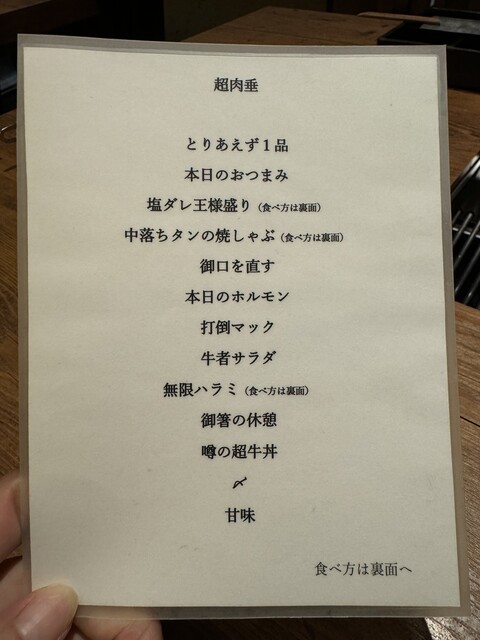 超肉垂
とりあえず１品
本日のおつまみ
塩ダレ王様盛り（食べ方は裏面）
中落ちタンの焼しゃぶ（食べ方は裏面）
御口を直す
本日のホルモン
打倒マック
牛者サラダ
無限ハラミ（食べ方は裏面）
御箸の休憩
噂の超牛丼
〆
甘味
食べ方は裏面へ